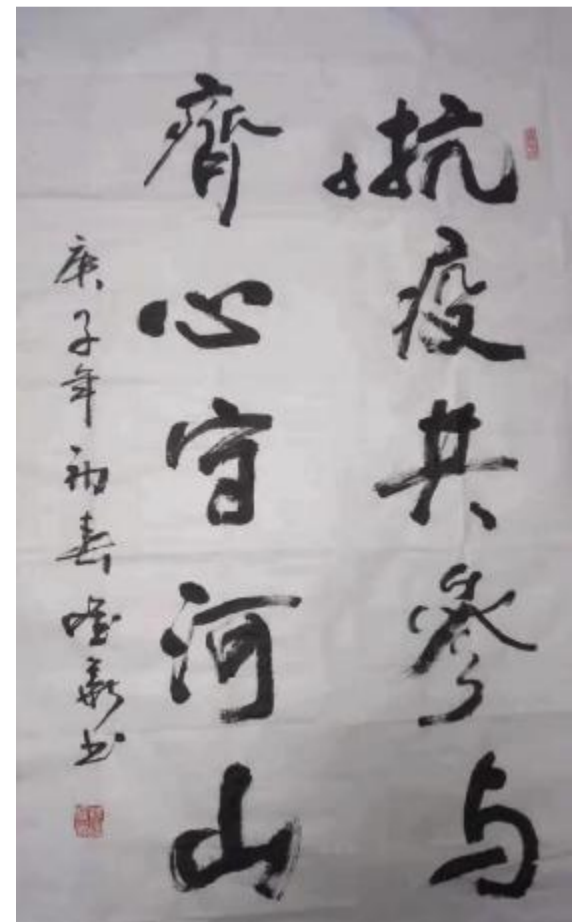 抗疫共參与
齊心守河山
庚子年初春 書